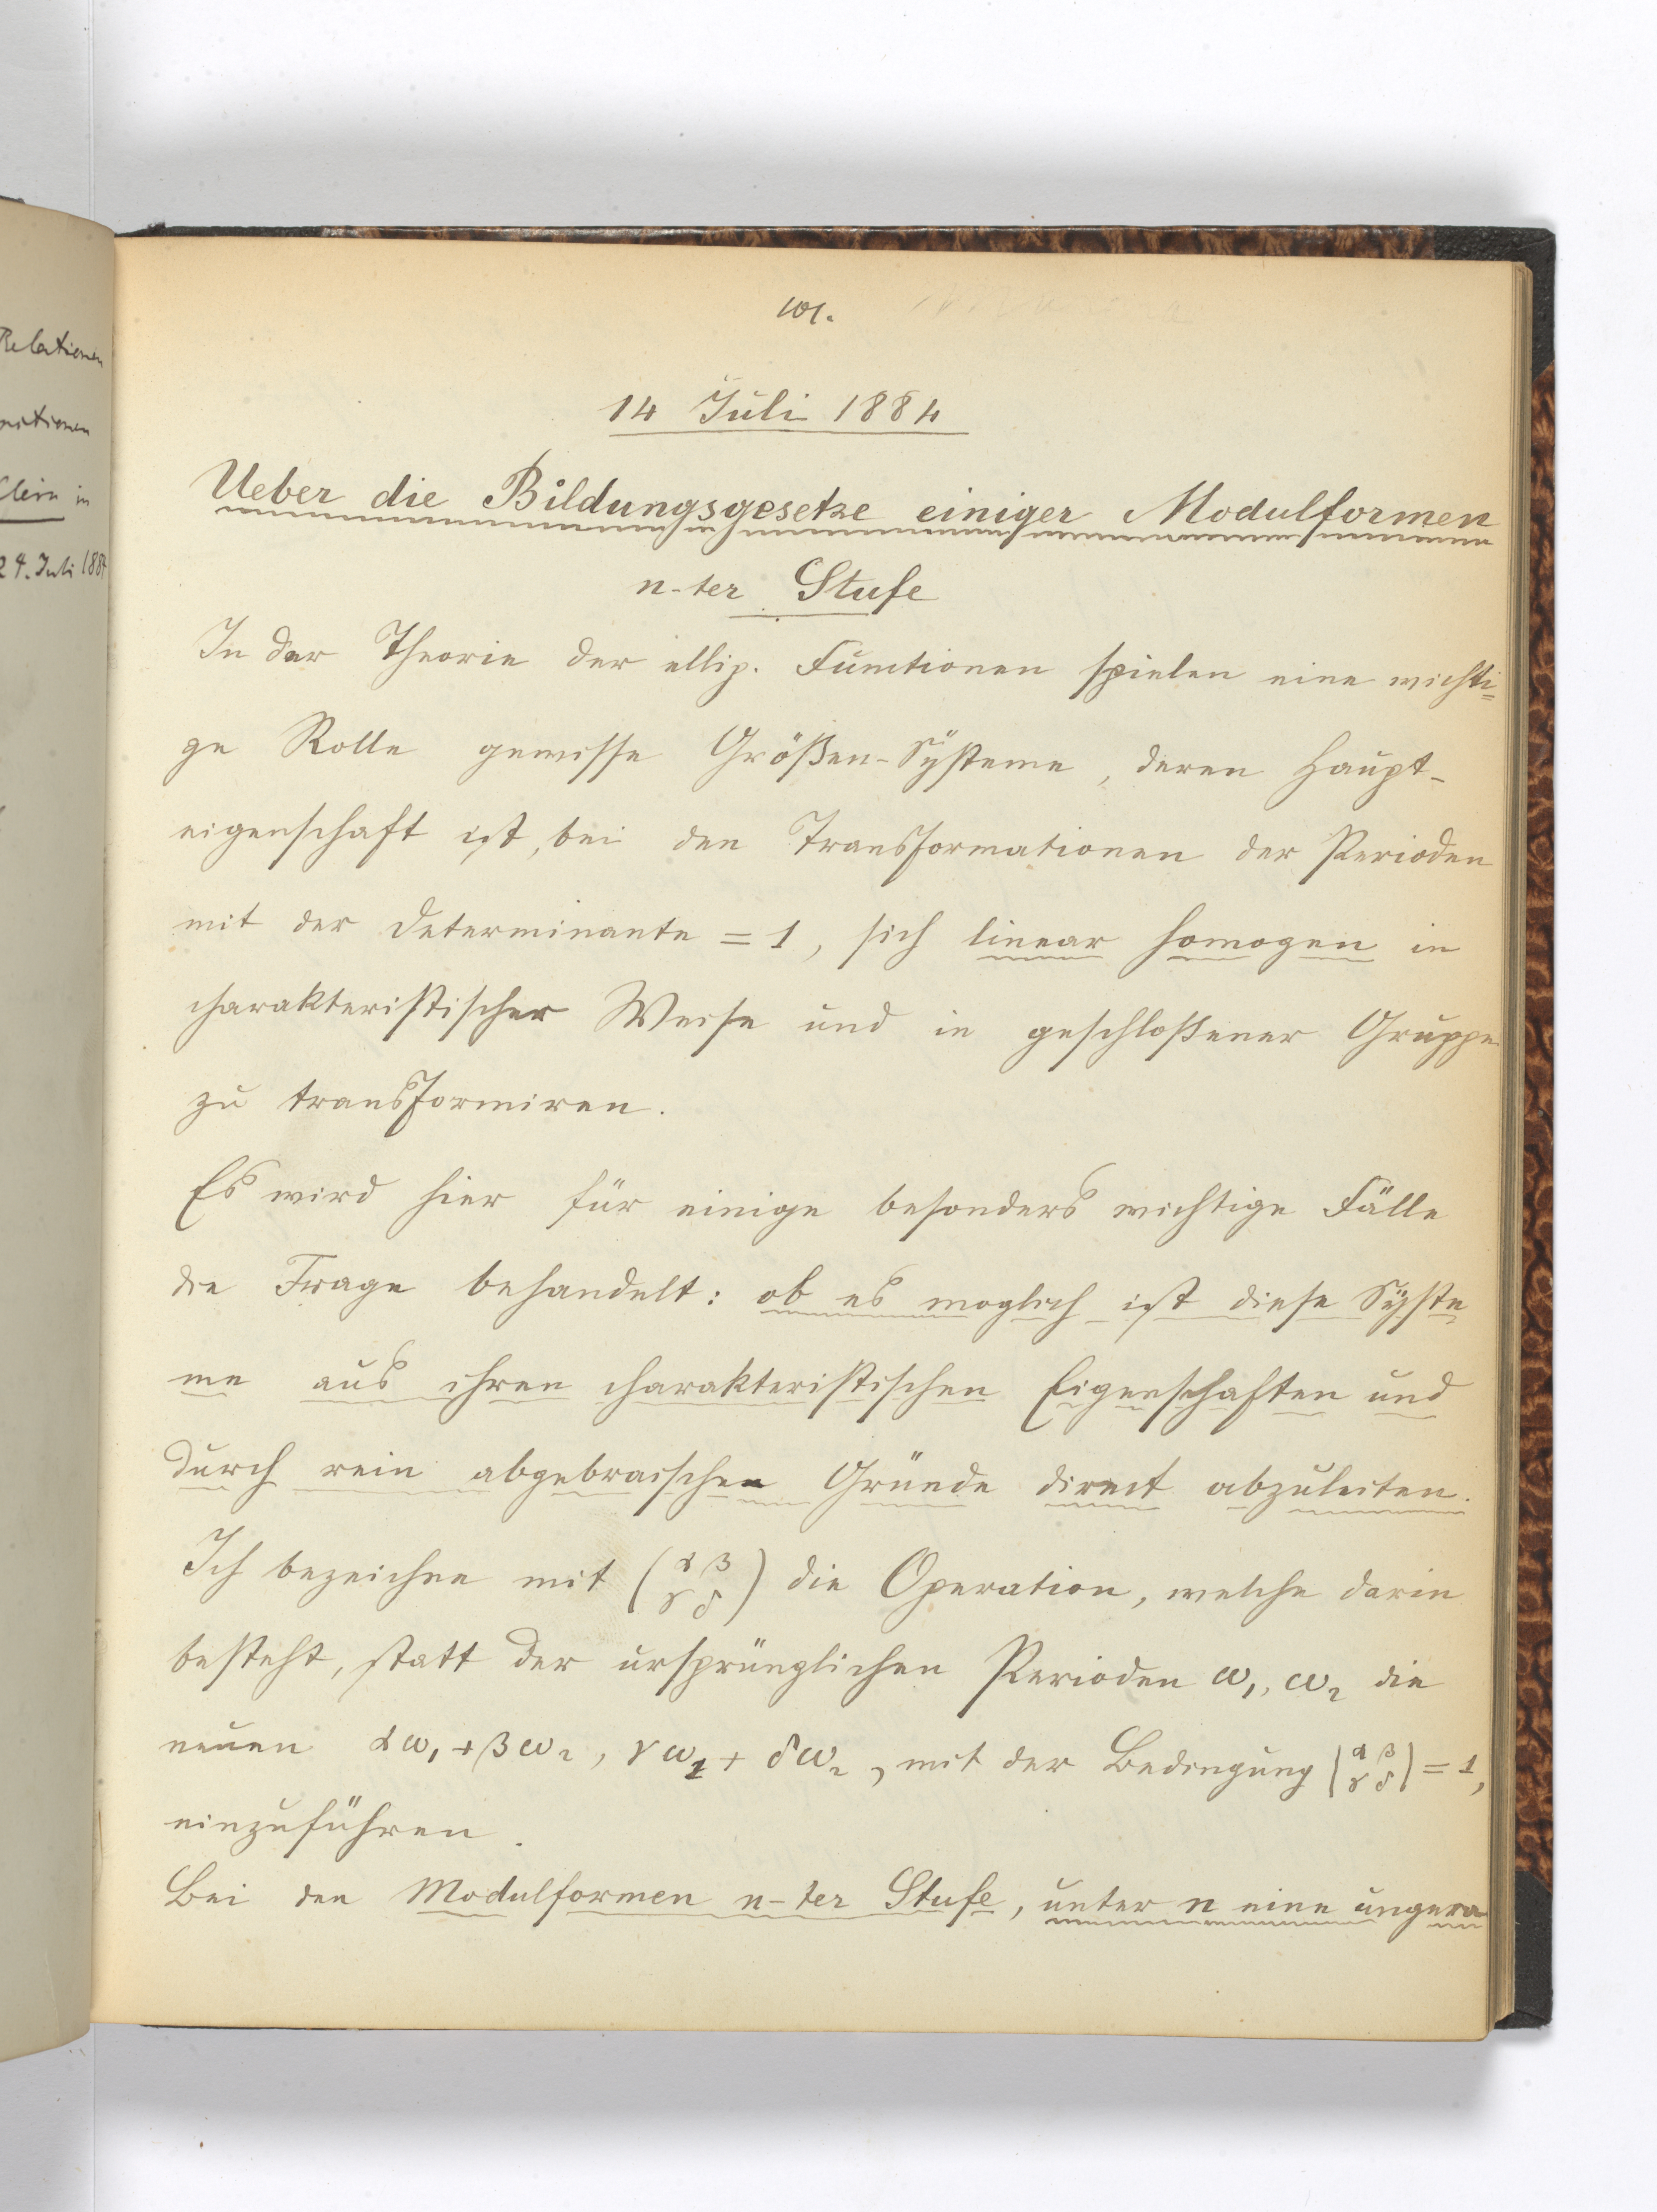 Relationen
Klein in
24. Juli 1884
101.
14 Juli 1884
Ueber die Bildungsgesetze einiger Modulformen
n-ter Stufe
In der Theorie der ellip. Functionen spielen eine wichti=
ge Rolle gewisse Größen-Systeme, deren Haupt-
eigenschaft ist, bei den Transformationen der Perioden
mit der Determinante = 1, sich linear homogen in
charakteristischer Weise und in geschloßener Gruppe
zu transformiren.
Es wird hier für einige besonders wichtige Fälle
die Frage behandelt: ob es moglich ist diese Syste
me aus ihren charakteristischen Eigenschaften und
durch rein abgebraischen Gründe direct abzuleiten.
Ich bezeichne mit (α β γ δ) die Operation, welche darin
besteht, statt der ursprünglichen Perioden ω₁, ω₂ die
neuen αω₁+βω₂, γω₁+δω₂, mit der Bedingung |α β γ δ| = 1,
einzuführen.
Bei den Modulformen n-ter Stufe, unter n eine ungera